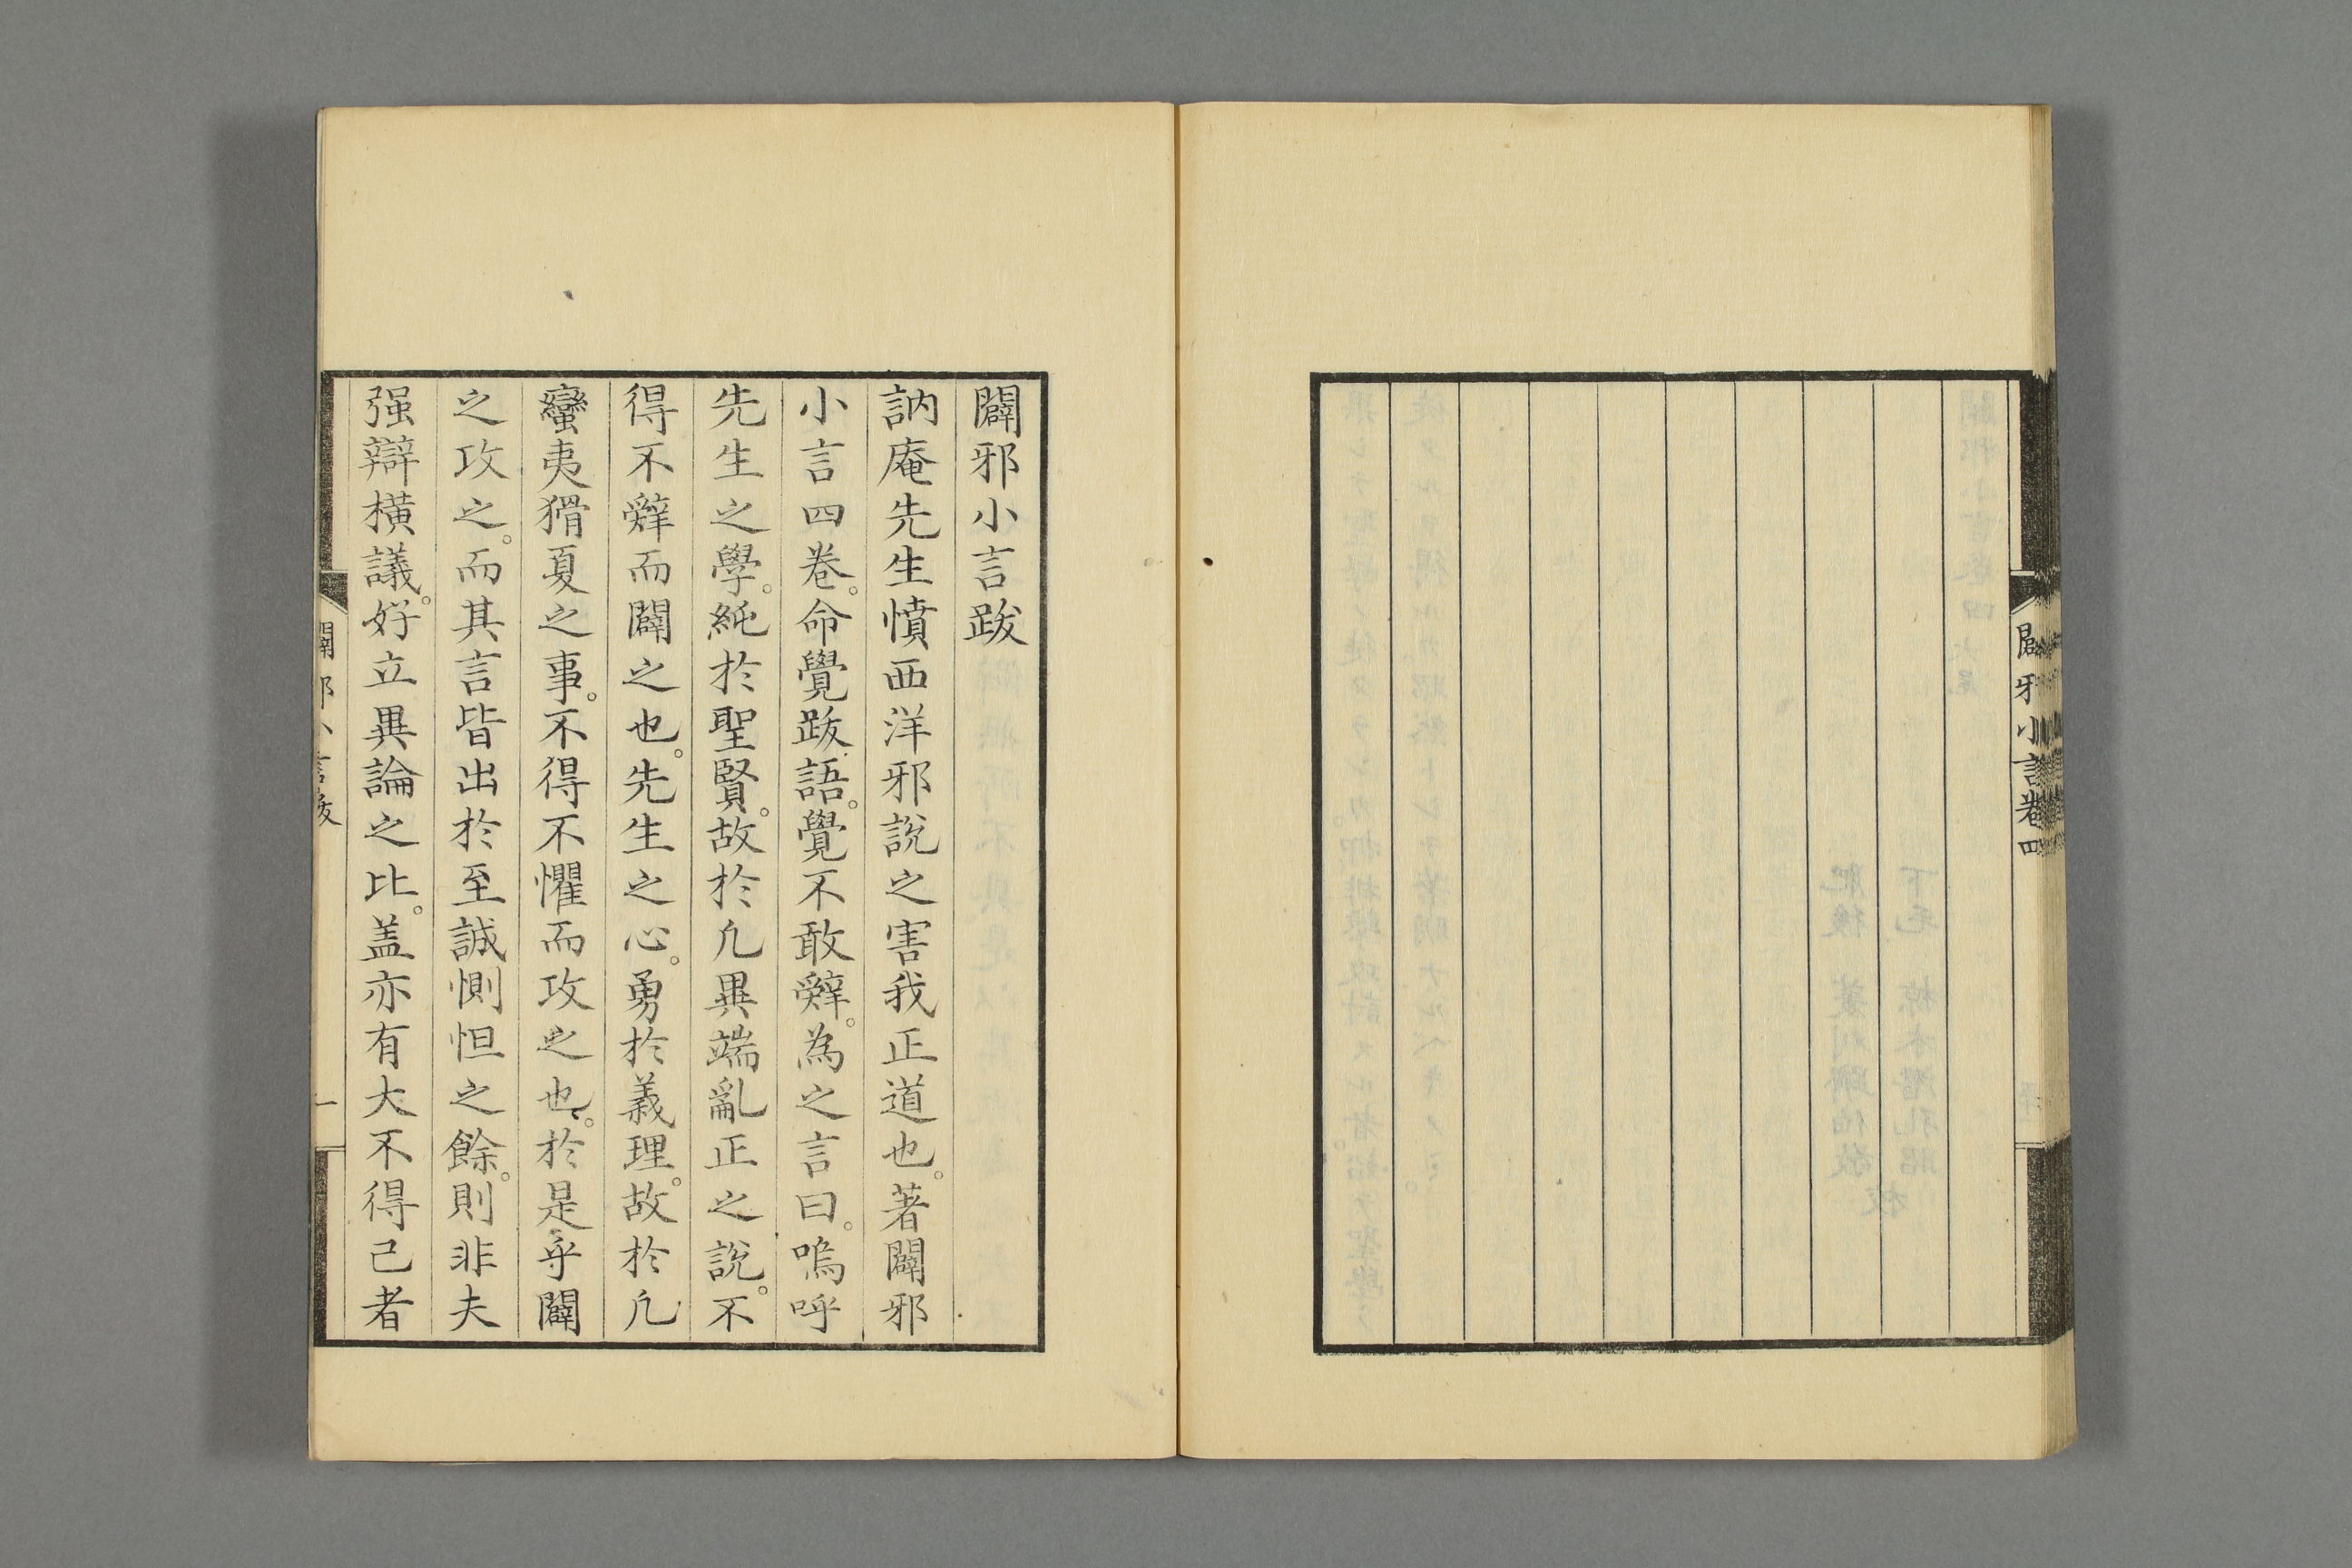 闢邪小言卷四
闢邪小言跋
訥庵先生憤西洋邪說之害我正道也。著闢邪
小言四卷。命覺跋語。覺不敢辤。為之言曰。嗚呼
先生之學。純於聖賢。故於凢異端亂正之說。不
得不辤而闢之也。先生之心。勇於義理。故於凢
蠻夷猾夏之事。不得不懼而攻之也。於是乎闢
之攻之。而其言皆出於至誠惻怛之餘。則非夫
强辯橫議。好立異論之比。盖亦有大不得已者
闢邪小言跋
一